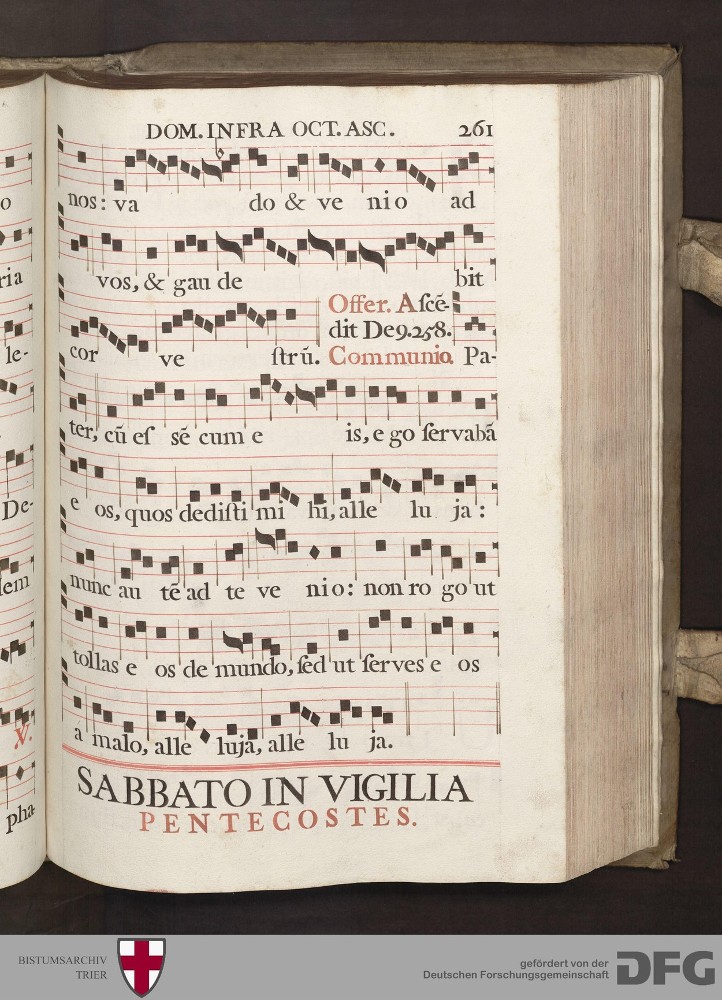 DOM. INFRA OCT. ASC. 261
nos: va do & ve nio ad
vos, & gau de bit
cor ve ſtrū. Offer. Aſcē-
dit De9.258.
Communio. Pa-
ter, cū eſ sē cum e is, e go ſervabā
e os, quos dediſti mi hi, alle lu ja:
nunc au tē ad te ve nio: non ro go ut
tollas e os de mundo, ſed ut ſerves e os
á malo, alle luja, alle lu ja.
SABBATO IN VIGILIA
PENTECOSTES.
o
ria
le-
De-
lem
V.
pha
BISTUMSARCHIV
TRIER
gefördert von der
Deutschen Forschungsgemeinschaft
DFG